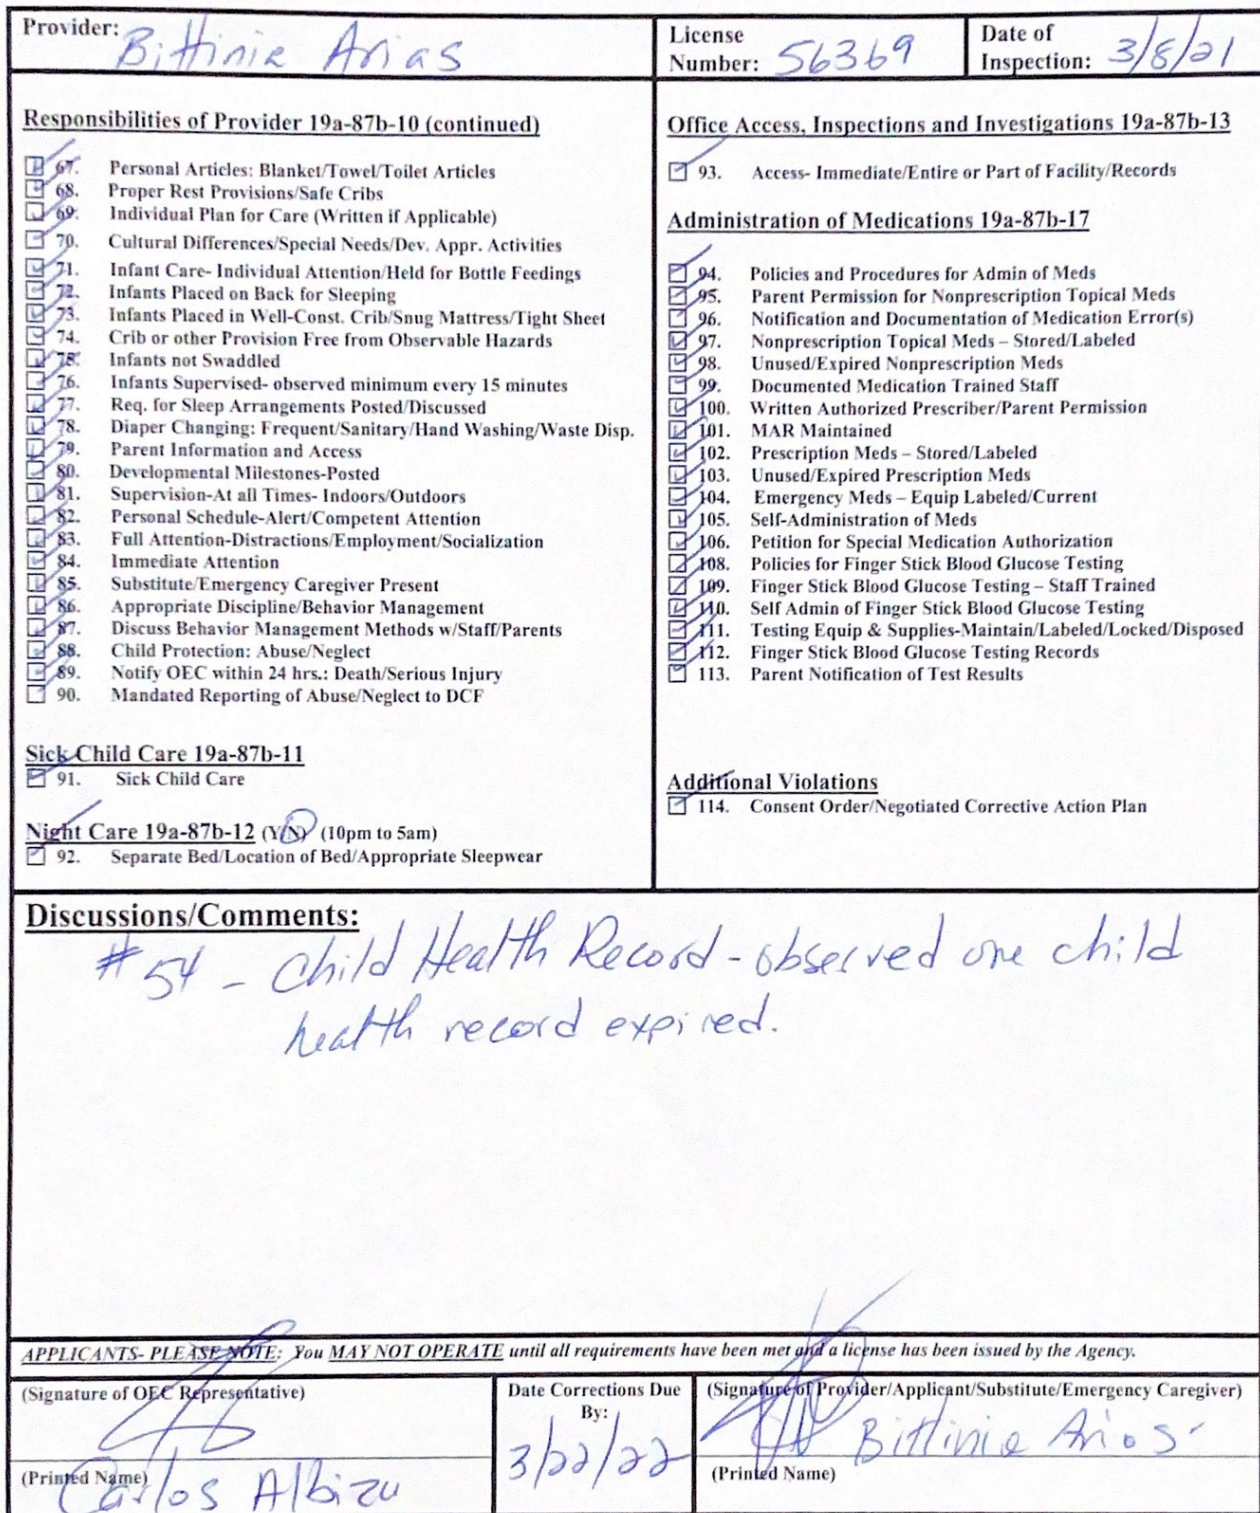 Provider: Bittinia Arias
License Number: 56369
Date of Inspection: 3/8/21
Responsibilities of Provider 19a-87b-10 (continued)
67. Personal Articles: Blanket/Towel/Toilet Articles
68. Proper Rest Provisions/Safe Cribs
69. Individual Plan for Care (Written if Applicable)
70. Cultural Differences/Special Needs/Dev. Appr. Activities
71. Infant Care- Individual Attention/Held for Bottle Feedings
72. Infants Placed on Back for Sleeping
73. Infants Placed in Well-Const. Crib/Snug Mattress/Tight Sheet
74. Crib or other Provision Free from Observable Hazards
75. Infants not Swaddled
76. Infants Supervised- observed minimum every 15 minutes
77. Req. for Sleep Arrangements Posted/Discussed
78. Diaper Changing: Frequent/Sanitary/Hand Washing/Waste Disp.
79. Parent Information and Access
80. Developmental Milestones-Posted
81. Supervision-At all Times- Indoors/Outdoors
82. Personal Schedule-Alert/Competent Attention
83. Full Attention-Distractions/Employment/Socialization
84. Immediate Attention
85. Substitute/Emergency Caregiver Present
86. Appropriate Discipline/Behavior Management
87. Discuss Behavior Management Methods w/Staff/Parents
88. Child Protection: Abuse/Neglect
89. Notify OEC within 24 hrs.: Death/Serious Injury
90. Mandated Reporting of Abuse/Neglect to DCF
Sick Child Care 19a-87b-11
91. Sick Child Care
Night Care 19a-87b-12 (Y/N) (10pm to 5am)
92. Separate Bed/Location of Bed/Appropriate Sleepwear
Office Access, Inspections and Investigations 19a-87b-13
93. Access- Immediate/Entire or Part of Facility/Records
Administration of Medications 19a-87b-17
94. Policies and Procedures for Admin of Meds
95. Parent Permission for Nonprescription Topical Meds
96. Notification and Documentation of Medication Error(s)
97. Nonprescription Topical Meds – Stored/Labeled
98. Unused/Expired Nonprescription Meds
99. Documented Medication Trained Staff
100. Written Authorized Prescriber/Parent Permission
101. MAR Maintained
102. Prescription Meds – Stored/Labeled
103. Unused/Expired Prescription Meds
104. Emergency Meds – Equip Labeled/Current
105. Self-Administration of Meds
106. Petition for Special Medication Authorization
108. Policies for Finger Stick Blood Glucose Testing
109. Finger Stick Blood Glucose Testing – Staff Trained
110. Self Admin of Finger Stick Blood Glucose Testing
111. Testing Equip & Supplies-Maintain/Labeled/Locked/Disposed
112. Finger Stick Blood Glucose Testing Records
113. Parent Notification of Test Results
Additional Violations
114. Consent Order/Negotiated Corrective Action Plan
Discussions/Comments:
#54 - Child Health Record - observed one child
health record expired.
APPLICANTS- PLEASE NOTE: You MAY NOT OPERATE until all requirements have been met and a license has been issued by the Agency.
(Signature of OEC Representative)
(Printed Name) Carlos Albizu
Date Corrections Due
By:
3/22/22
(Signature of Provider/Applicant/Substitute/Emergency Caregiver)
Bittinia Arias
(Printed Name)